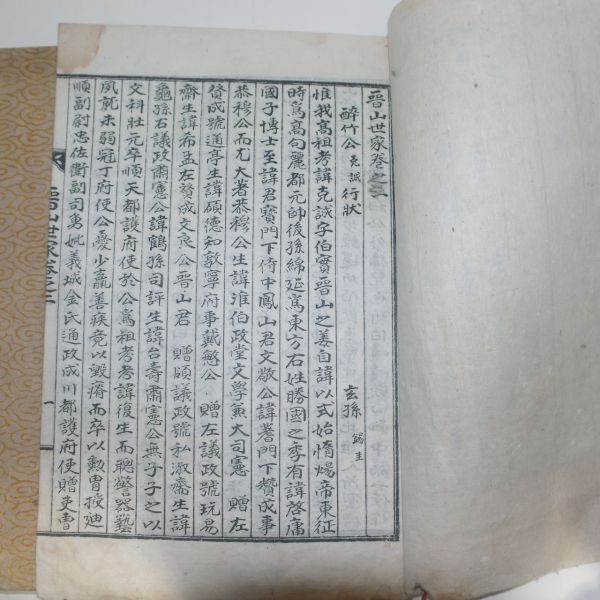 晉山世家卷之二
醉竹公克誠行狀
玄孫 錫圭
惟我高祖考諱克誠字伯實晉山之姜自諱以式始惰煬帝東征
時爲高句麗都元帥後孫綿延爲東方右姓勝國之季有諱啓庸
國子博士至諱君寶門下侍中鳳山君文敬公諱蓍門下贊成事
恭穆公而尤大著恭穆公生諱淮伯政堂文學兼大司憲 贈左
贊成號通亭生諱碩德知敦寧府事戴愍公 贈左議政號玩易
齋生諱希孟左贊成文良公晉山君 贈領議政號私淑齋生諱
龜孫右議政肅憲公諱鶴孫司評生諱台壽肅憲公無子子之以
文科壯元卒順天都護府使於公爲祖考考諱復生而聰警器藝
夙就未弱冠丁府使公憂少羸善疾竟以毁瘠而卒以勳胄授廸
順副尉忠佐衛副司勇妣義城金氏通政成川都護府使贈吏曹
晉山世家卷之二
一